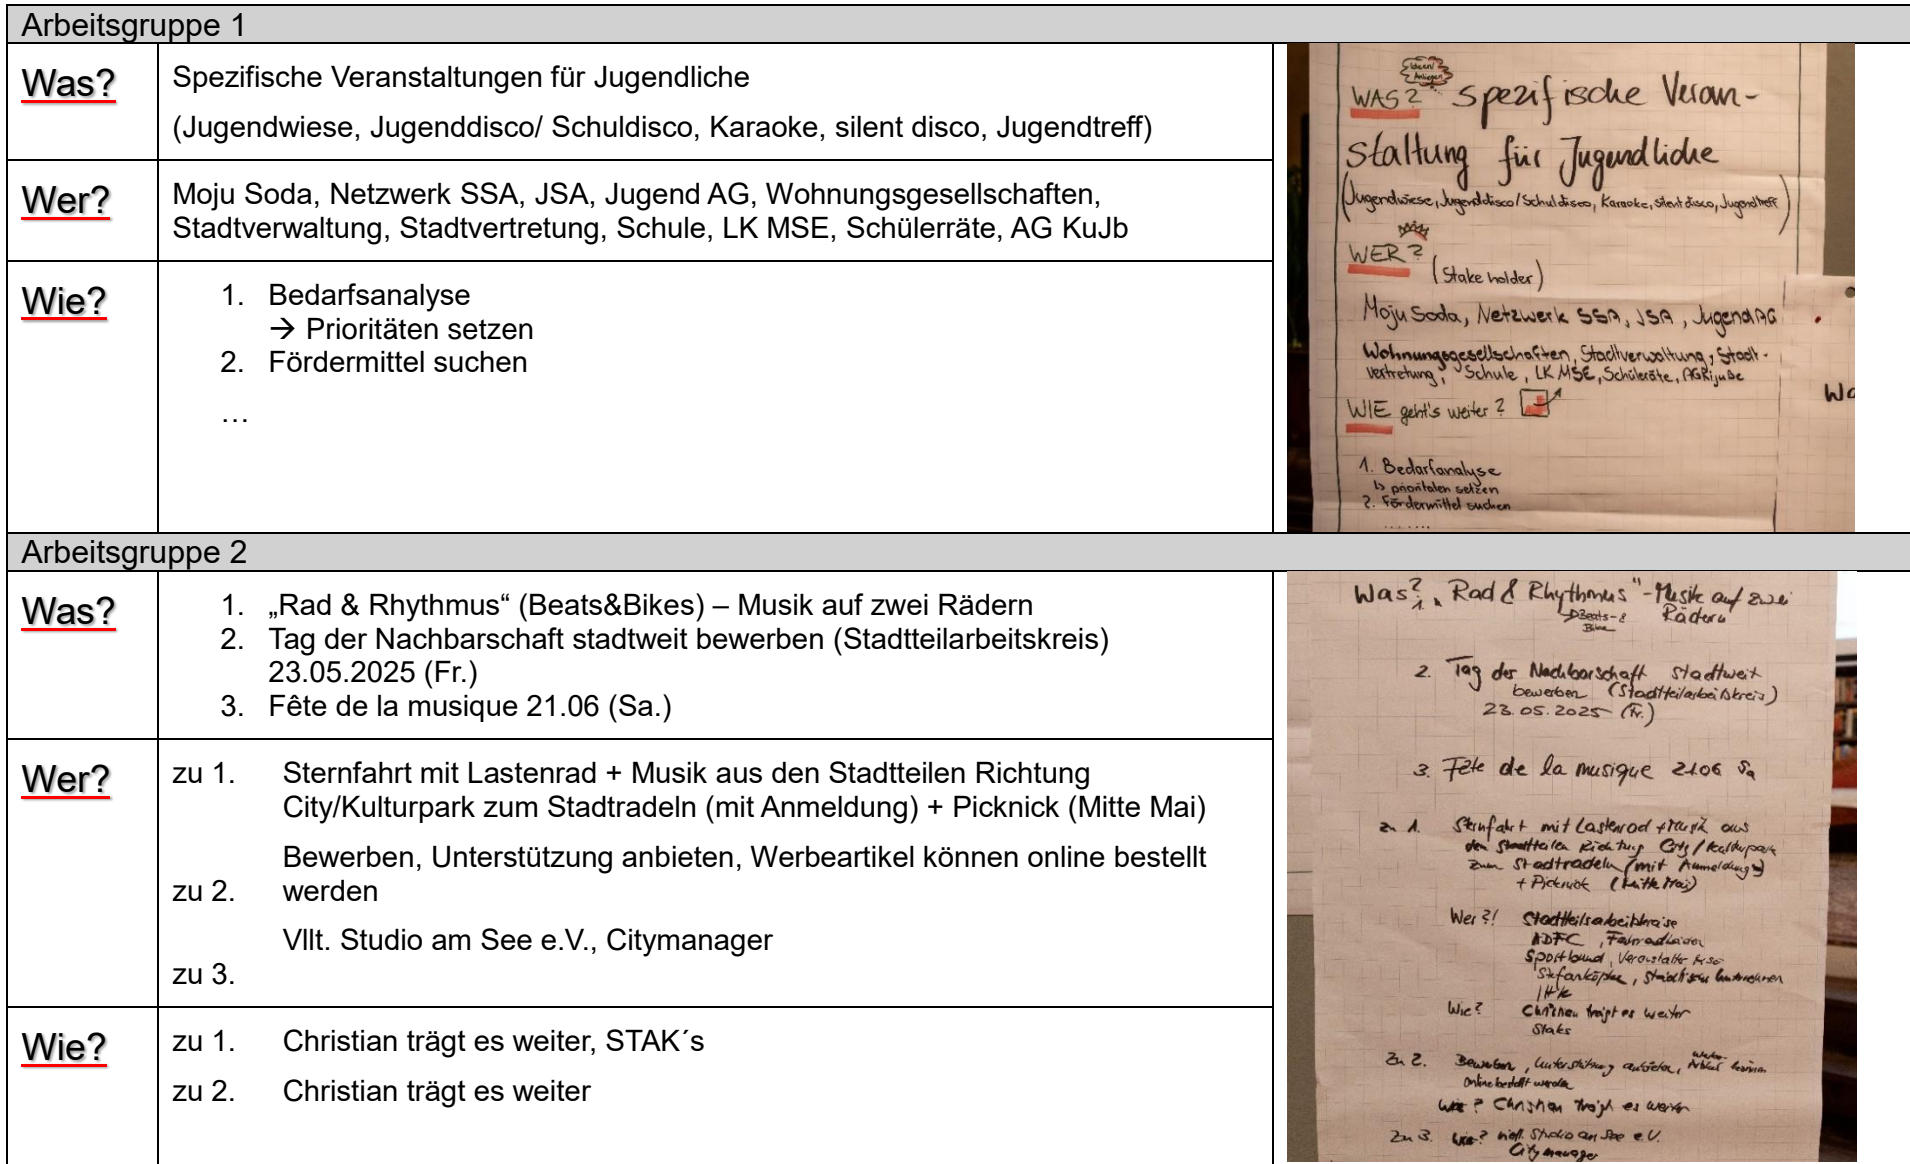 Arbeitsgruppe 1
Was?
Spezifische Veranstaltungen für Jugendliche
(Jugendwiese, Jugenddisco/ Schuldisco, Karaoke, silent disco, Jugendtreff)
Wer?
Moju Soda, Netzwerk SSA, JSA, Jugend AG, Wohnungsgesellschaften,
Stadtverwaltung, Stadtvertretung, Schule, LK MSE, Schülerräte, AG KuJb
Wie?
1. Bedarfsanalyse
→ Prioritäten setzen
2. Fördermittel suchen
…
Ideen/
Anliegen
WAS? spezifische Veran-
staltung für Jugendliche
(Jugendwiese, Jugenddisco/Schuldisco, Karaoke, silent disco, Jugendtreff)
WER? (Stakeholder)
Moju Soda, Netzwerk SSA, JSA, Jugend AG
Wohnungsgesellschaften, Stadtverwaltung, Stadt-
vertretung, Schule, LK MSE, Schülerräte,
WIE geht's weiter?
1. Bedarfanalyse
↳ prioritäten setzen
2. Fördermittel suchen
.......
Wa
Arbeitsgruppe 2
Was?
1. „Rad & Rhythmus“ (Beats&Bikes) – Musik auf zwei Rädern
2. Tag der Nachbarschaft stadtweit bewerben (Stadtteilarbeitskreis)
23.05.2025 (Fr.)
3. Fête de la musique 21.06 (Sa.)
Wer?
zu 1. Sternfahrt mit Lastenrad + Musik aus den Stadtteilen Richtung
City/Kulturpark zum Stadtradeln (mit Anmeldung) + Picknick (Mitte Mai)
Bewerben, Unterstützung anbieten, Werbeartikel können online bestellt
zu 2. werden
Vllt. Studio am See e.V., Citymanager
zu 3.
Wie?
zu 1. Christian trägt es weiter, STAK´s
zu 2. Christian trägt es weiter
Was? 1. „Rad & Rhythmus" - Musik auf zwei
Beats- & Rädern
2. Tag der Nachbarschaft stadtweit
bewerben (Stadtteilarbeitskreis)
23.05.2025 (Fr.)
3. Fête de la musique 21.06 Sa
zu 1. Sternfahrt mit Lastenrad + Musik aus
den Stadtteilen Richtung City/Kulturpark
zum Stadtradeln (mit Anmeldung)
+ Picknick (Mitte Mai)
Wer?! Stadtteilsarbeitskreise
ADFC, Fahrradläden
Sportbund, Veranstalter
IHK
Wie? Christian trägt es weiter
Staks
zu 2. Bewerben, Unterstützung anbieten, Artikel können
online bestellt werden
Christian trägt es weiter
zu 3. Studio am See e.V.
Citymanager